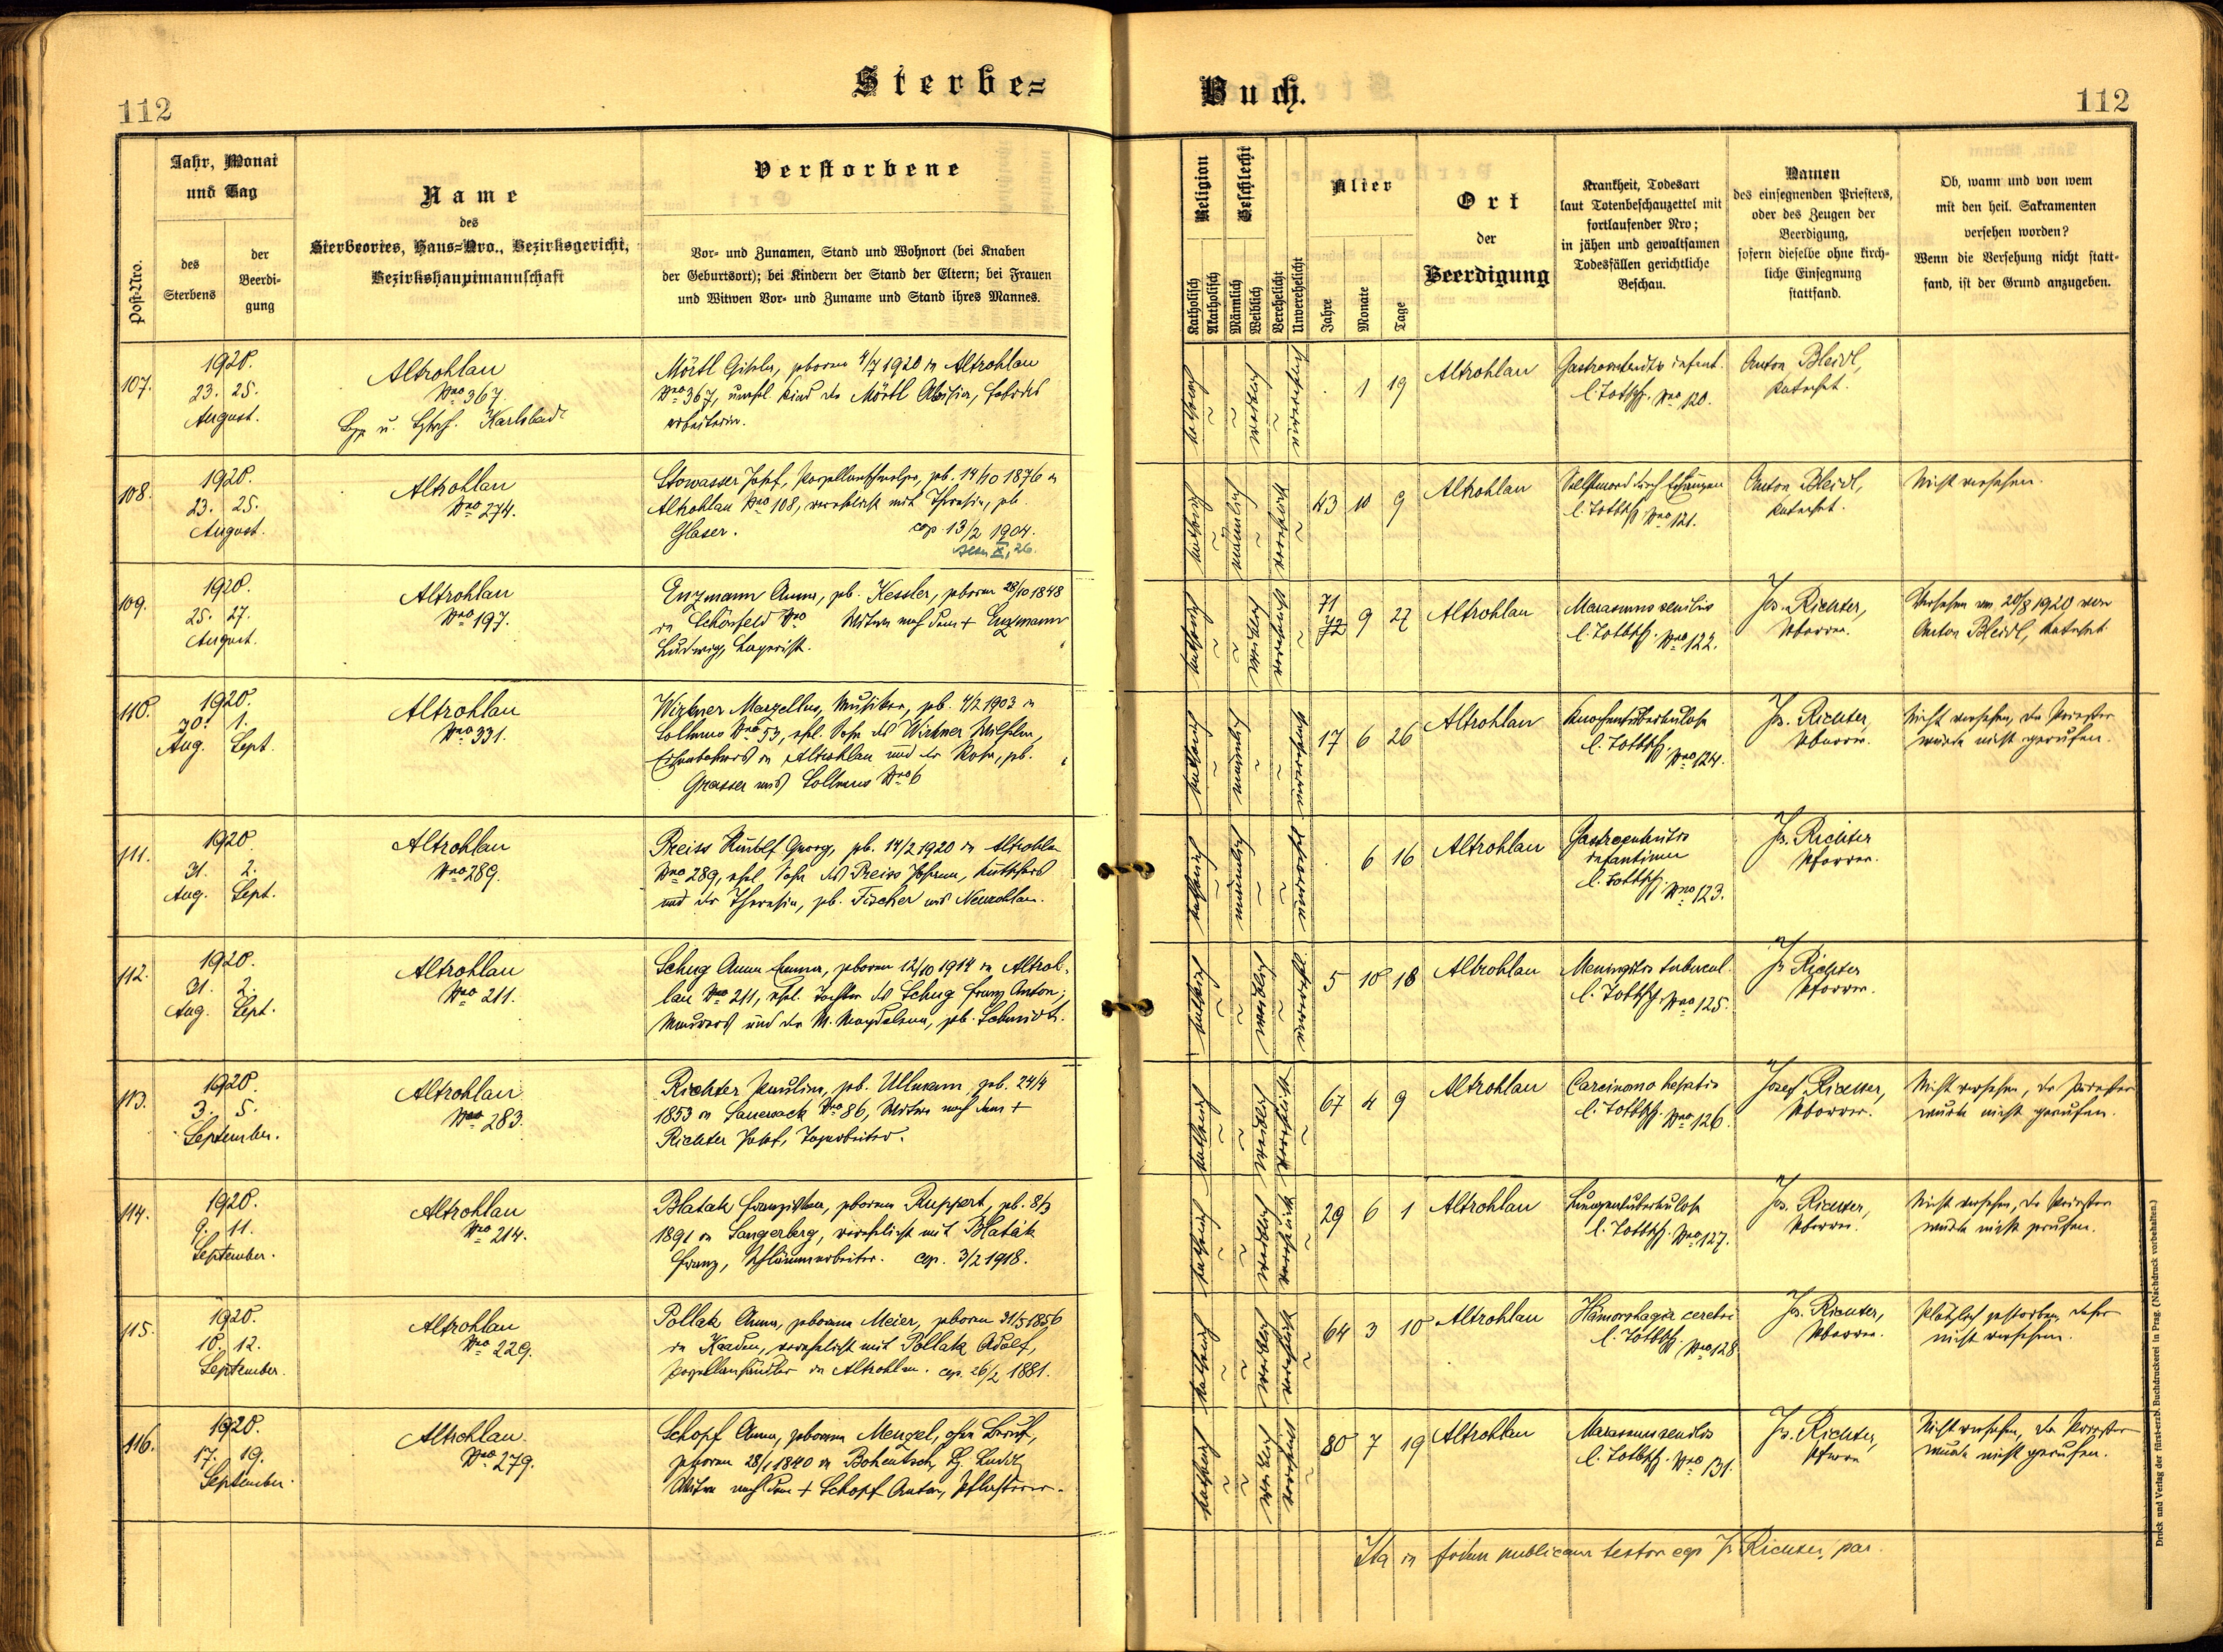 Sterbe=
Buch.
112
112
Post-Nro.
Jahr, Monat
und Tag
des
Sterbens
der
Beerdi-
gung
Name
des
Sterbeortes, Haus=Nro., Bezirksgericht,
Bezirkshauptmannschaft
Verstorbene
Vor- und Zunamen, Stand und Wohnort (bei Knaben
der Geburtsort); bei Kindern der Stand der Eltern; bei Frauen
und Witwen Vor- und Zuname und Stand ihres Mannes.
Religion
Katholisch
Akatholisch
Geschlecht
Männlich
Weiblich
Verehelicht
Unverehelicht
Alter
Jahre
Monate
Tage
Ort
der
Beerdigung
Krankheit, Todesart
laut Totenbeschauzettel mit
fortlaufender Nro;
in jähen und gewaltsamen
Todesfällen gerichtliche
Beschau.
Namen
des einsegnenden Priesters,
oder des Zeugen der
Beerdigung,
sofern dieselbe ohne kirch-
liche Einsegnung
stattfand.
Ob, wann und von wem
mit den heil. Sakramenten
versehen worden?
Wenn die Versehung nicht statt-
fand, ist der Grund anzugeben.
107.
1920.
23. 25.
August.
Altrohlau
Nro 367.
Karlsbad
Mörtl Gisela, geboren 4/7 1920 in Altrohlau
Nro 367, unehl. Kind der Mörtl Aloisia, Fabriks
arbeiterin.
katholisch weiblich unverehelicht
1 19
Altrohlau
Gastroenteritis infant.
l. Totbsch. Nro 120.
Anton Bleidl,
Katechet.
108.
1920.
23. 25.
August.
Altrohlau
Nro 274.
Stowasser Josef, Porzellanschmelzer, geb. 14/10 1876 in
Altrohlau Nro 108, verehelicht mit Theresia, geb.
Glaser. cop. 13/2 1904.
katholisch männlich verehelicht
43 10 9
Altrohlau
Selbstmord durch Erhängen
l. Totbsch. Nro 121.
Anton Bleidl,
Katechet.
Nicht versehen.
109.
1920.
25. 27.
August.
Altrohlau
Nro 197.
Enzmann Anna, geb. Kessler, geboren 28/10 1848
in Schönfeld Nro Witwe nach dem + Enzmann
Ludwig, Lagerist.
katholisch weiblich verehelicht
71
72 9 27
Altrohlau
Marasmus senilis
l. Totbsch. Nro 122.
Jos. Richter,
Pfarrer.
Versehen am 20/8 1920 von
Anton Bleidl, Katechet
110.
1920.
30. 1.
Aug. Sept.
Altrohlau
Nro 331.
Wirkner Marzellus, Musiker, geb. 4/2 1903 in
Nro 53, ehl. Sohn des Wirkner Wilhelm,
in Altrohlau und der Rosa, geb.
Grasser aus Nro 6
katholisch männlich unverehelicht
17 6 26
Altrohlau
Knochentuberkulose
l. Totbsch. Nro 124.
Jos. Richter,
Pfarrer.
Nicht versehen, der Priester
wurde nicht gerufen.
111.
1920.
31. 2.
Aug. Sept.
Altrohlau
Nro 289.
Preiss Rudolf Georg, geb. 14/2 1920 in Altrohlau
Nro 289, ehel. Sohn des Preiss Johann, Kutschers
und der Theresia, geb. Fischer aus Neurohlau.
katholisch männlich unverehelicht
6 16
Altrohlau
Gastroenteritis
infantium
l. Totbsch. Nro 123.
Jos. Richter
Pfarrer.
112.
1920.
31. 2.
Aug. Sept.
Altrohlau
Nro 211.
Schug Anna Emma, geboren 12/10 1914 in Altroh-
lau Nro 211, ehel. Tochter des Schug Franz Anton,
Maurers und der M. Magdalena, geb. Schmidt.
katholisch weiblich unverehel.
5 10 18
Altrohlau
Meningitis tubercul.
l. Totbsch. Nro 125.
Jos. Richter
Pfarrer.
113.
1920.
3. 5.
September.
Altrohlau
Nro 283.
Richter Paulina, geb. Ullmann, geb. 24/4
1853 in Sauersack Nro 86, Witwe nach dem +
Richter Josef, Tagarbeiter.
katholisch weiblich verehelicht
67 4 9
Altrohlau
Carcinoma hepatis
l. Totbsch. Nro 126.
Josef Richter,
Pfarrer.
Nicht versehen, der Priester
wurde nicht gerufen.
114.
1920.
9. 11.
September.
Altrohlau
Nro 214.
Blatak Franziska, geborene Ruppert, geb. 8/3
1891 in Sangerberg, verehelicht mit Blatak
Franz, Schlämmarbeiter. cop. 3/2 1918.
katholisch weiblich verehelicht
29 6 1
Altrohlau
Lungentuberkulose
l. Totbsch. Nro 127.
Jos. Richter,
Pfarrer.
Nicht versehen, der Priester
wurde nicht gerufen.
115.
1920.
10. 12.
September.
Altrohlau
Nro 229.
Pollak Anna, geborene Meier, geboren 31/5 1856
in Kaaden, verehelicht mit Pollak Adolf,
Porzellanhändler in Altrohlau. cop. 26/2 1881.
katholisch weiblich verehelicht
64 3 10
Altrohlau
Hämorrhagia cerebri
l. Totbsch. Nro 128
Jos. Richter,
Pfarrer.
Plötzlich gestorben, daher
nicht versehen.
116.
1920.
17. 19.
September.
Altrohlau.
Nro 279.
Schopf Anna, geborene Menzel, ohne Beruf,
geboren 28/1 1840 in
Witwe nach dem + Schopf Anton, Pflasterer.
katholisch weiblich verehelicht
80 7 19
Altrohlau
Marasmus senilis
l. Totbsch. Nro 131.
Jos. Richter,
Pfarrer
Nicht versehen, der Priester
wurde nicht gerufen.
Ita in fidem publicam testor ego Jos Richter, par.
Druck und Verlag der fürst-erzb. Buchdruckerei in Prag. (Nachdruck vorbehalten.)